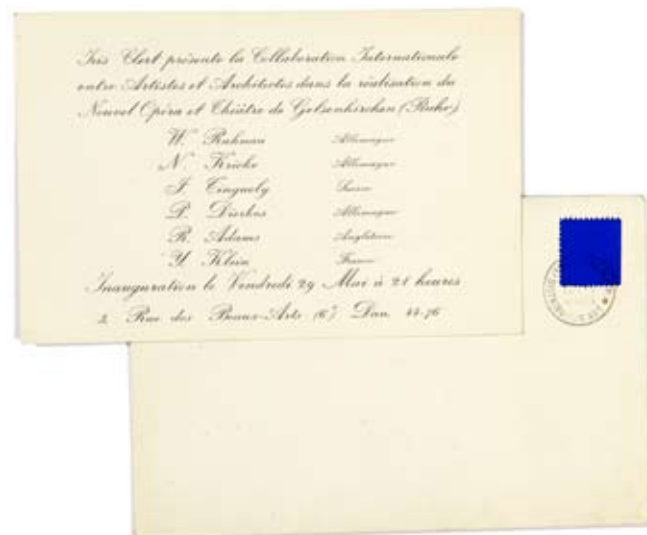 Iris Clert présente la Collaboration Internationale
entre Artistes et Architectes dans la réalisation du
Nouvel Opéra et Théâtre de Gelsenkirchen (Ruhr)
W. Ruhnau Allemagne
N. Kricke Allemagne
J. Tinguely Suisse
P. Dierkes Allemagne
R. Adams Angleterre
Y. Klein France
Inauguration le Vendredi 29 Mai à 21 heures
3, Rue des Beaux-Arts (6e) Dan. 44-76